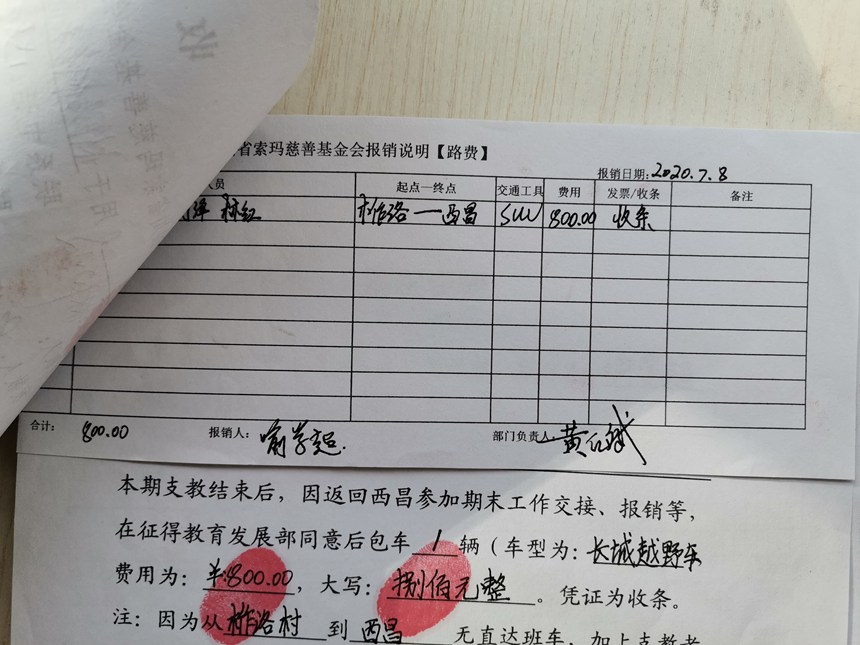 省索玛慈善基金会报销说明【路费】
报销日期:2020.7.8
员 起点—终点 交通工具 费用 发票/收条 备注
林红 柞洛—西昌 SUV 800.00 收条
合计: 800.00 报销人: 喻学超. 部门负责人
本期支教结束后，因返回西昌参加期末工作交接、报销等，
在征得教育发展部同意后包车 1 辆（车型为：长城越野车
费用为：￥:800.00，大写：捌佰元整。凭证为收条。
注：因为从柞洛村到西昌 无直达班车，加上支教老